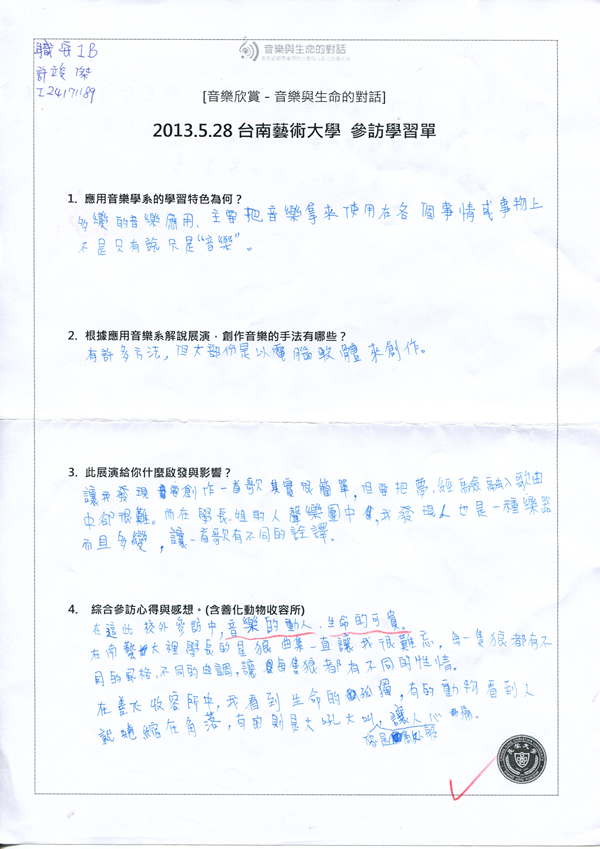 職安1B
許竣傑
I24171189
音樂與生命的對話
[音樂欣賞 - 音樂與生命的對話]
2013.5.28 台南藝術大學 參訪學習單
1. 應用音樂學系的學習特色為何？
多變的音樂應用. 主要把音樂拿來使用在各個事情或事物上
不是只有說只是“音樂”。
2. 根據應用音樂系解說展演，創作音樂的手法有哪些？
有許多方法，但大部份是以電腦軟體來創作。
3. 此展演給你什麼啟發與影響？
讓我發現創作一首歌其實很簡單，但要把夢.經驗融入歌曲
中卻很難。而在學長.姐的人聲樂團中，我發現人也是一種樂器
而且多變，讓一首歌有不同的詮譯。
4. 綜合參訪心得與感想。(含善化動物收容所)
在這此校外參訪中，音樂的動人.生命的可貴。
在南藝大裡學長的是狼曲集一直讓我很難忘，每一隻狼都有不
同的風格.不同的曲調，讓每隻狼都有不同的性情。
在善犬收容所中，我看到生命的孤獨，有的動物看到人
就蜷縮在角落，有的則是大吼大叫，讓人心痛。